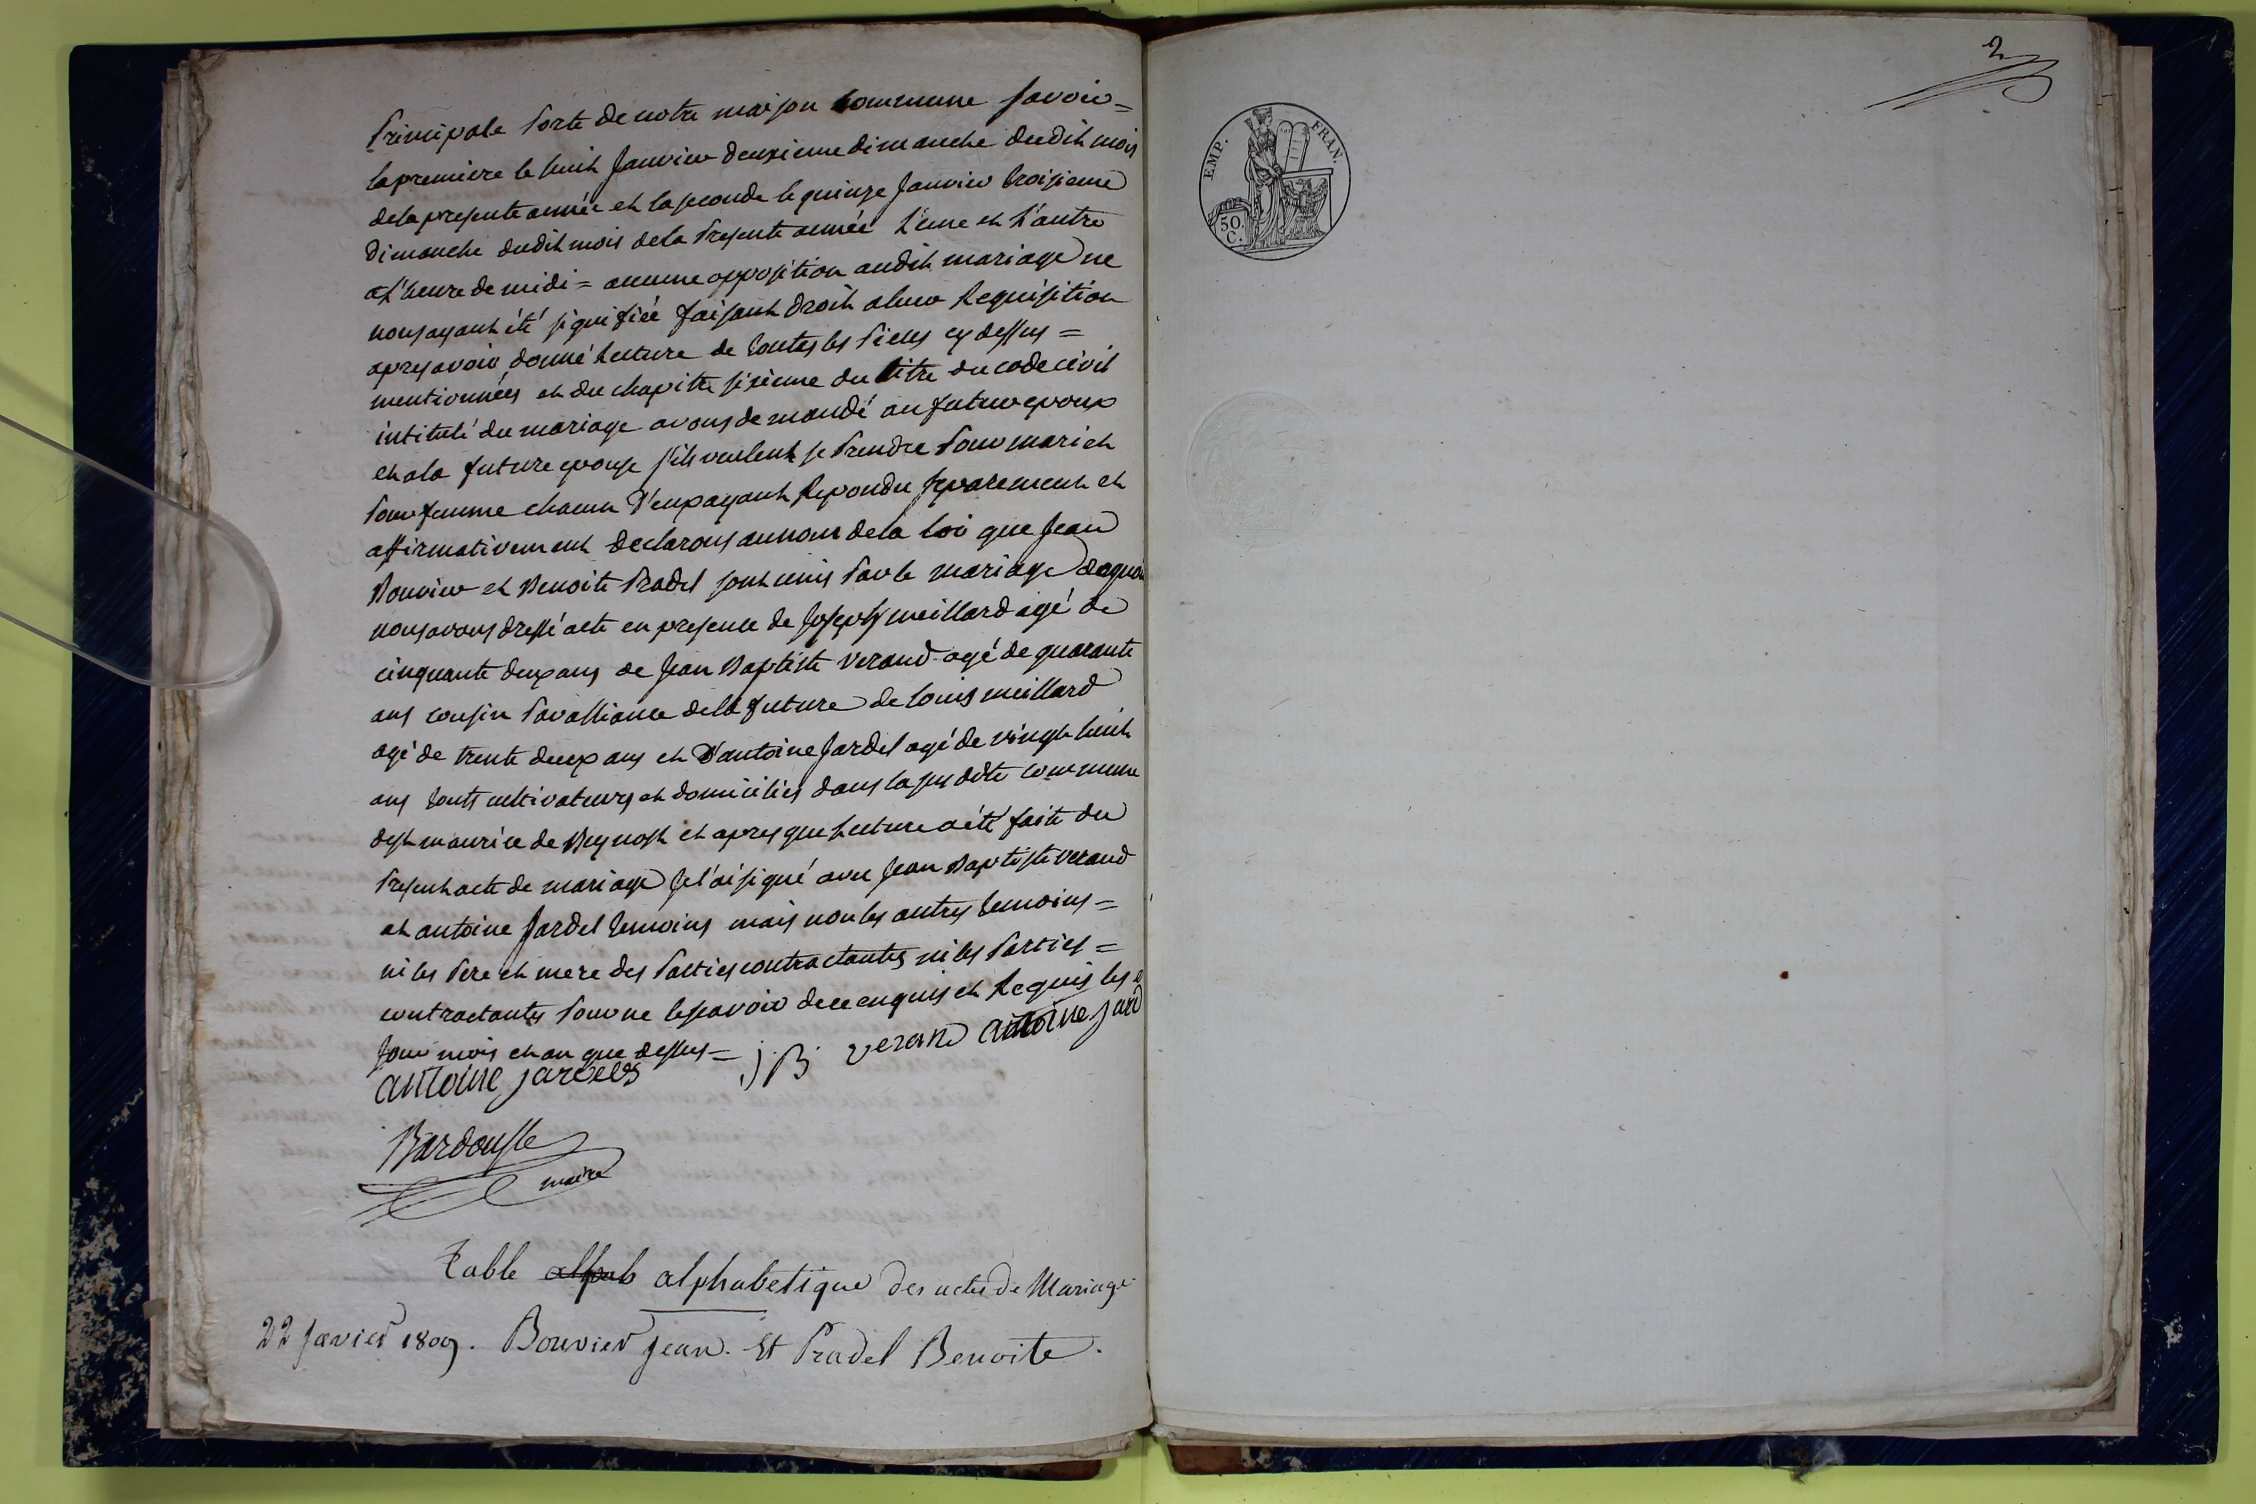 principale porte de notre maison commune savoir =
la premiere le huit janvier deuxieme dimanche dudit mois
de la presente année et la seconde le quinze janvier troisieme
dimanche dudit mois de la presente année l'une et l'autre
a l'heure de midi = aucune opposition audit mariage ne
nous ayant été signifiée faisant droit a leur requisition
apres avoir donné lecture de toutes les pieces cy dessus =
mentionnées et du chapitre sixieme du titre du code civil
intitulé du mariage avons demandé au futur epoux
et a la future epouse s'ils veulent se prendre pour mari et
pour femme chacun d'eux ayant repondu separement et
affirmativement declarons au nom de la loi que jean
Bouvier et Benoite Pradel sont unis par le mariage de quoi
nous avons dressé acte en presence de joseph meillard agé de
cinquante deux ans de jean Baptiste Verand agé de quarante
ans cousin par alliance de la future de louis meillard
agé de trente deux ans et d'antoine jardel agé de vingt huit
ans touts cultivateurs et domiciliés dans la susdite commune
de st maurice de Beynost et apres que lecture a été faite du
present acte de mariage je l'ai signé avec jean Baptiste verand
et antoine jardel temoins mais non les autres temoins =
ni les pere et mere des parties contractantes ni les parties =
contractantes pour ne le savoir de ce enquis et requis les
jour mois et an que dessus =
j B verand antoine jard
antoine jardel
Bardousse
maire
Table alphab alphabetique des actes de Mariage
22 janvier 1809. Bouvier jean. Et Pradel Benoite.
2
EMP. FRAN.
50
C.